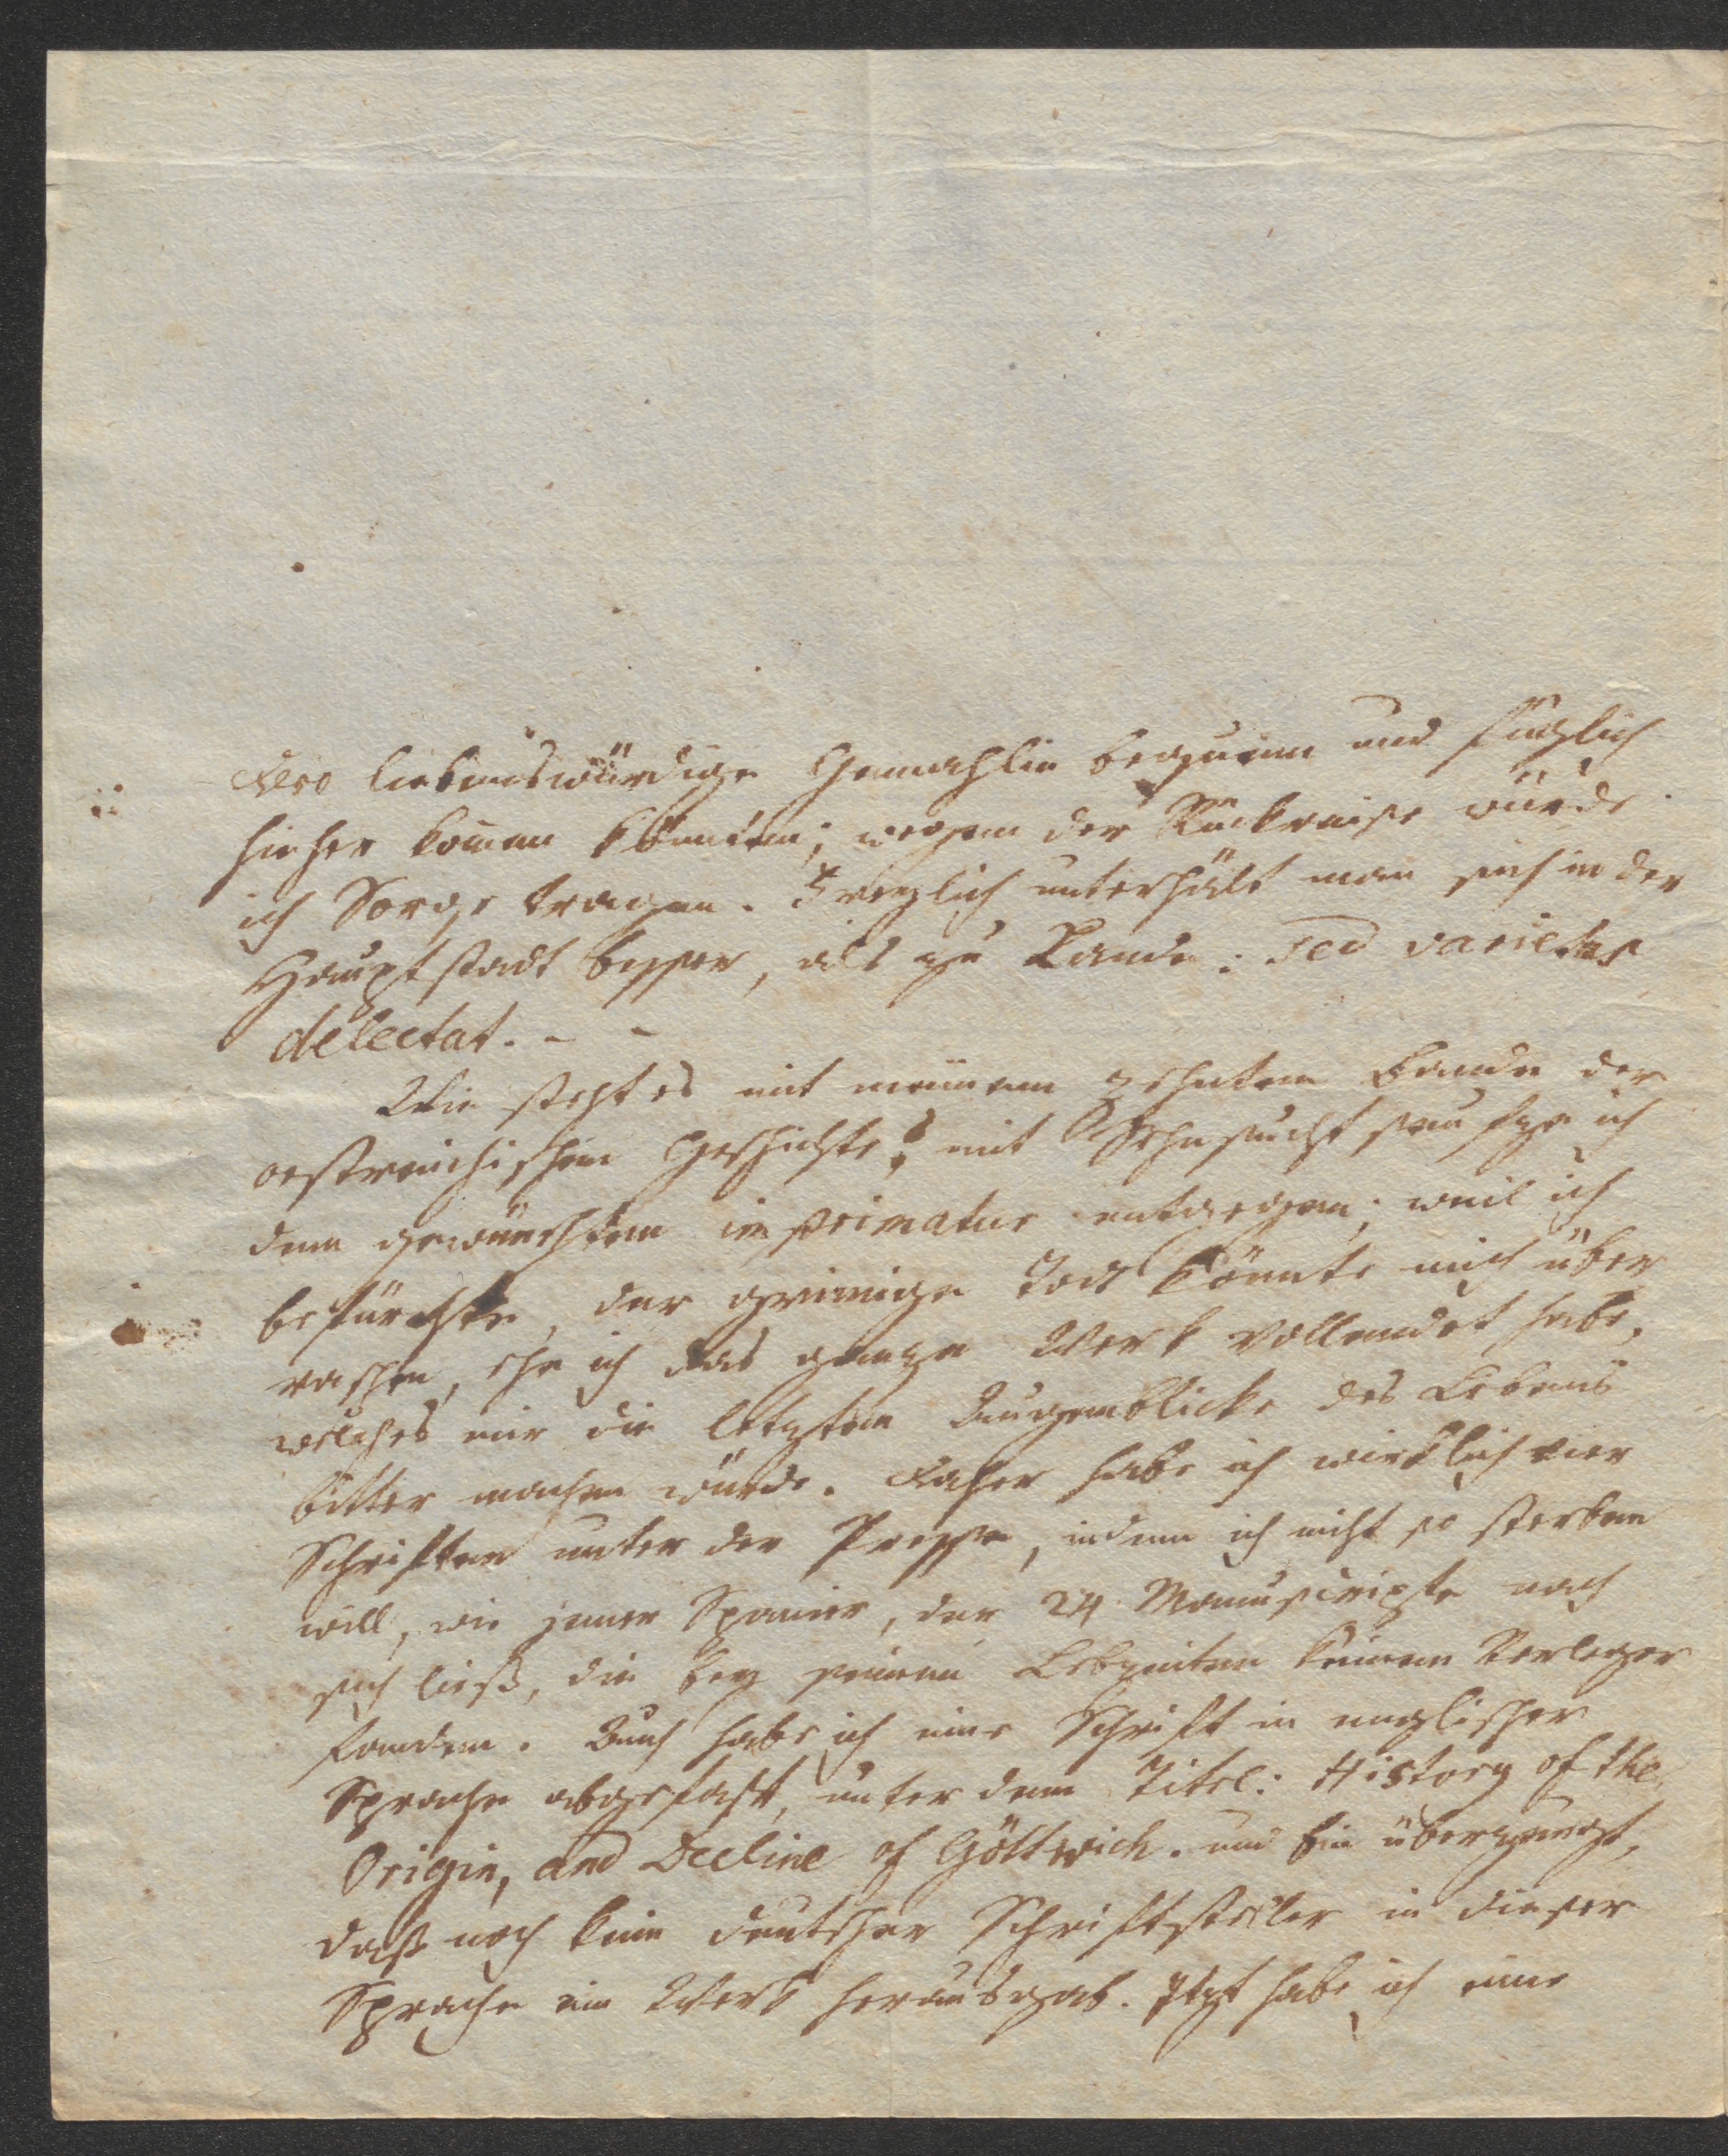 dero liebenswürdige Gemahlin bequem und füglich
hieher komen könnten; wegen der Rückreise würde
ich Sorge tragen. Freylich unterhält man sich in der
Hauptstadt besser, als zu Lande: sed varietas
delectat. - -
Wie steht es mit meinem zehnten Bande der
oestreichischen Geschichte? mit Sehnsucht seufze ich
dem gewünschten imprimatur entgegen; weil ich
befürchte, der grimige Tod könnte mich über
raschen, ehe ich das ganze Werk vollendet habe,
welches mir die letzten Augenblicke des Lebens
bitter machen würde. Daher habe ich wirklich vier
Schriften unter der Presse, indem ich nicht so sterben
will, wie jener Spanier, der 24 Manuscripte nach
sich ließ, die bey seinen Lebzeiten keinen Verleger
fanden. Auch habe ich eine Schrift in englischer
Sprache abgefaßt, unter dem Titel: History of the
Origin, and Decline of Göttwich. und bin überzeugt,
daß noch kein deutscher Schriftsteller in dieser
Sprache ein Werk herausgab. Itzt habe ich eine